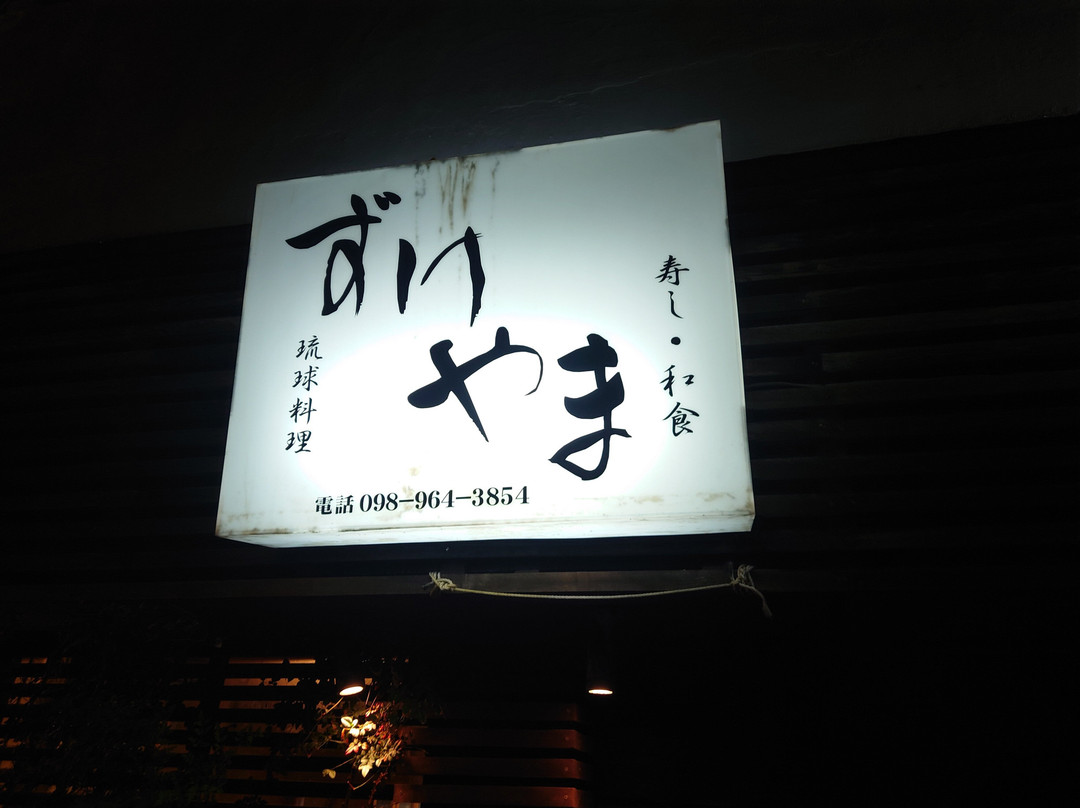 ずけ
やま
寿し・和食
琉球料理
電話 098-964-3854